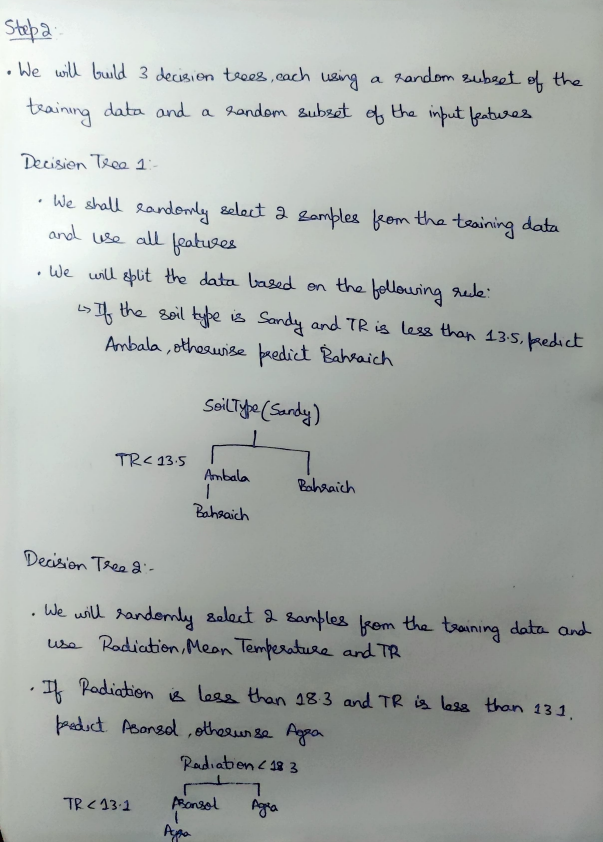 Step 2:-
• We will build 3 decision trees, each using a random subset of the
training data and a random subset of the input features
Decision Tree 1:-
• We shall randomly select 2 samples from the training data
and use all features
• We will split the data based on the following rule:
↳ If the soil type is Sandy and TR is less than 13.5, predict
Ambala, otherwise predict Bahraich
SoilType (Sandy)
TR < 13.5
Ambala
Bahraich
Bahraich
Decision Tree 2:-
• We will randomly select 2 samples from the training data and
use Radiation, Mean Temperature and TR
• If Radiation is less than 18.3 and TR is less than 13.1,
predict Asansol, otherwise Agra
Radiation < 18.3
TR < 13.1 Asansol Agra
Agra